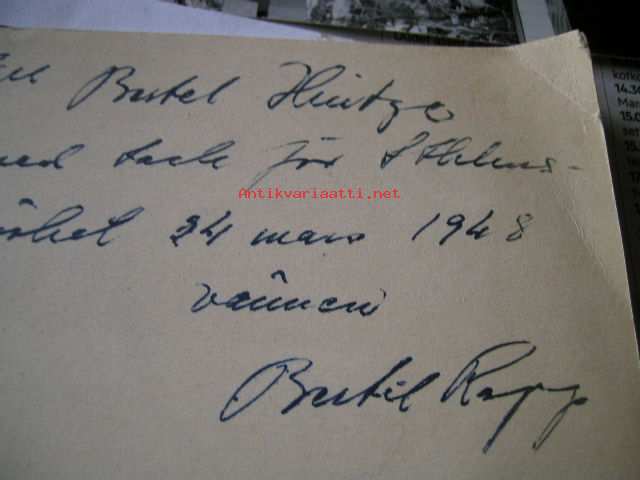 Bertel Hintze
med tack för Sthlms-
besöket 24 mars 1948
vännen
Bertil Rapp
Antikvariaatti.net
14.30
15.0